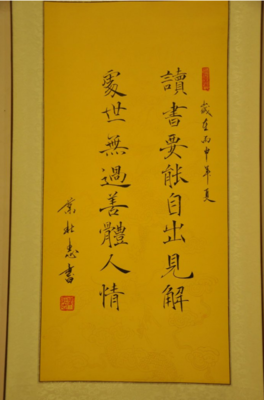 歲在丙申年夏
讀書要能自出見解
處世無過善體人情
業社志書